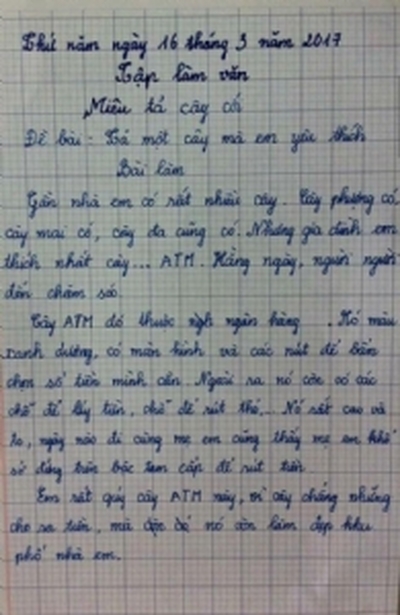 Thứ năm ngày 16 tháng 3 năm 2017
Tập làm văn
Miêu tả cây cối
Đề bài: Tả một cây mà em yêu thích
Bài làm
Gần nhà em có rất nhiều cây. Cây phượng có,
cây mai có, cây đa cũng có. Nhưng gia đình em
thích nhất cây... ATM. Hằng ngày, người người
đến chăm sóc.
Cây ATM đó thuộc ngân hàng. Nó màu
xanh dương, có màn hình và các nút để bấm
chọn số tiền mình cần. Ngoài ra nó còn có các
chỗ để lấy tiền, chỗ để rút thẻ,... Nó rất cao và
to, ngày nào đi cùng mẹ em cũng thấy mẹ em khổ
sở đứng trên bậc tam cấp để rút tiền.
Em rất quý cây ATM này, vì cây chẳng những
cho ra tiền, mà nó còn làm đẹp khu
phố nhà em.